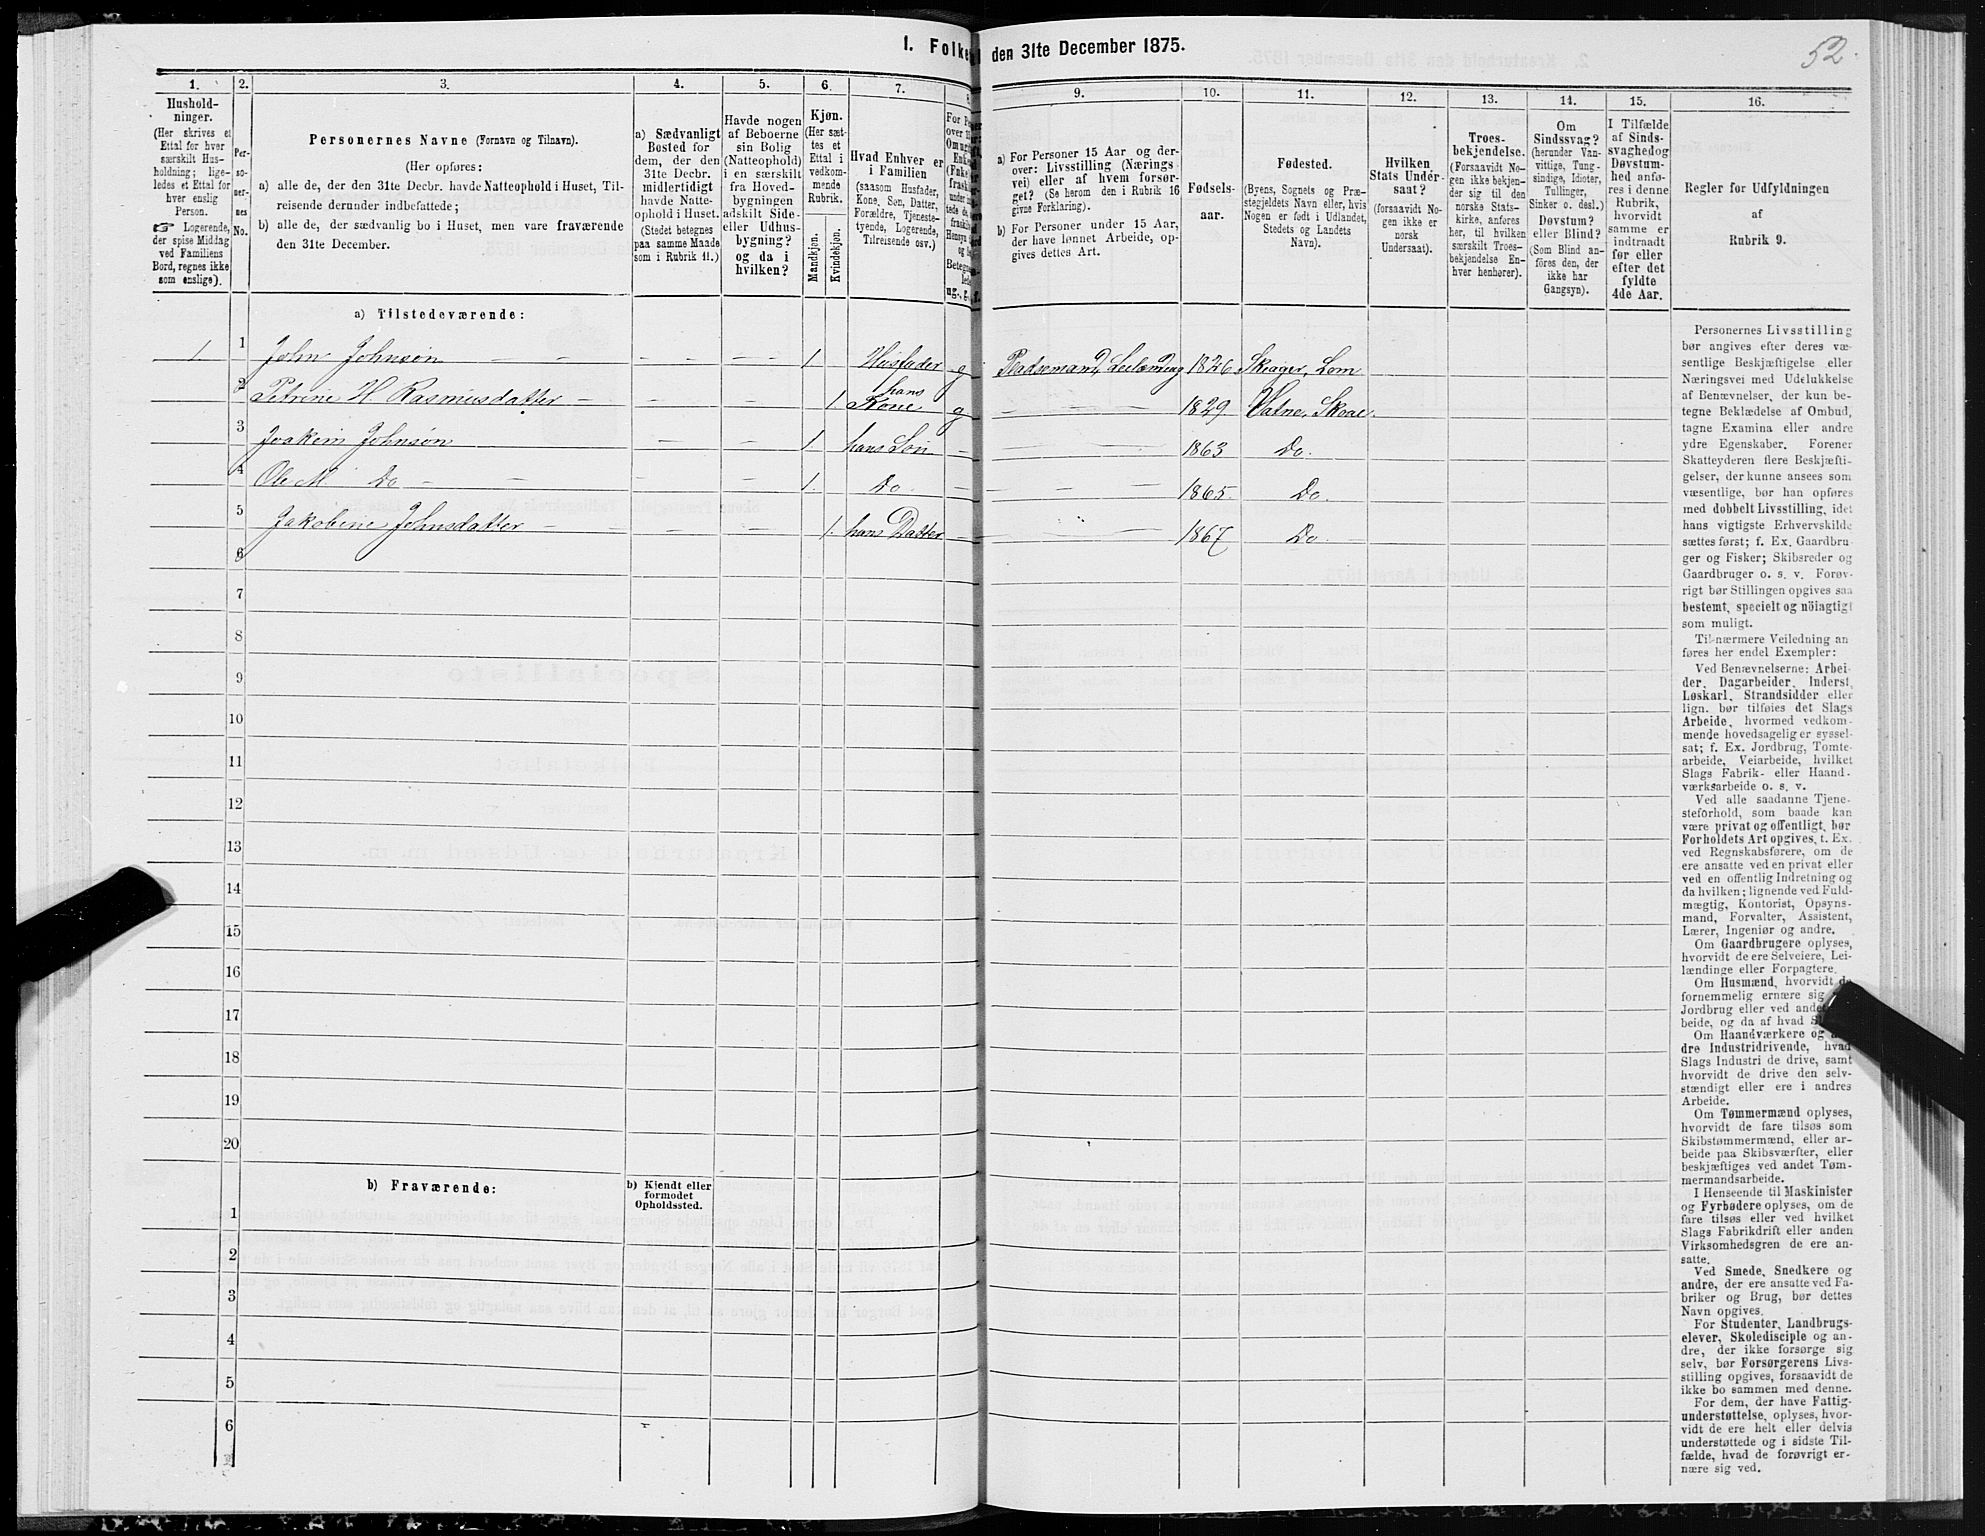 1. Folke
den 31te December 1875.
52.
1.
2.
3.
4.
5.
6.
7.
8.
9.
10.
11.
12.
13.
14.
15.
16.
Hushold-
ninger.
(Her skrives et
Ettal for hver
særskilt Hus-
holdning; lige-
ledes et Ettal for
hver enslig
Person.
☞ Logerende,
der spise Middag
ved Familiens
Bord, regnes ikke
som enslige).
Per-
so-
ner-
nes
No.
Personernes Navne (Fornavn og Tilnavn).
(Her opføres:
a) alle de, der den 31te Decbr. havde Natteophold i Huset, Til-
reisende derunder indbefattede;
b) alle de, der sædvanlig bo i Huset, men vare fraværende
den 31te December.
a) Sædvanligt
Bosted for
dem, der den
31te Decbr.
midlertidigt
havde Natte-
ophold i Huset.
(Stedet betegnes
paa samme Maade
som i Rubrik 11.)
Havde nogen
af Beboerne
sin Bolig
(Natteophold)
i en særskilt
fra Hoved-
bygningen
adskilt Side-
eller Udhus-
bygning?
og da i
hvilken?
Kjøn.
(Her sæt-
tes et
Ettal i
vedkom-
mende
Rubrik.
Mandkjøn.
Kvindekjøn.
Hvad Enhver er
i Familien
(saasom Husfader,
Kone, Søn, Datter,
Forældre, Tjeneste-
tyende, Logerende,
Tilreisende osv.)
a) For Personer 15 Aar og der-
over: Livsstilling (Nærings
vei) eller af hvem forsør-
get? (Se herom den i Rubrik 16
givne Forklaring).
b) For Personer under 15 Aar,
der have lønnet Arbeide, op-
gives dettes Art.
Fødsels-
aar.
Fødested.
(Byens, Sognets og Præ-
stegjeldets Navn eller, hvis
Nogen er født i Udlandet,
Stedets og Landets
Navn).
Hvilken
Stats Under-
saat?
(forsaavidt No-
gen ikke er
norsk
Undersaat).
Troes-
bekjendelse.
(Forsaavidt No-
gen ikke bekjen-
der sig til den
norske Stats-
kirke, anføres
her, til hvilken
særskilt Troes-
bekjendelse En-
hver henhører).
Om
Sindssvag?
(herunder Van-
vittige, Tung-
sindige, Idioter,
Tullinger,
Sinker o. desl.)
Døvstum?
eller Blind?
(Som Blind an-
føres den, der
ikke har
Gangsyn).
I Tilfælde
af Sinds-
svaghed og
Døvstum-
hed anfø-
res i denne
Rubrik,
hvorvidt
samme er
indtraadt
før eller
efter det
fyldte
4de Aar.
Regler for Udfyldningen
af
Rubrik 9.
a) Tilstedeværende:
1. 1 John Johnsøn 1. Husfader g Pladsemand, 1826 Skiager, Lom
2 Petrine H. Rasmusdatter 1. hans Kone g 1829 Vatne, Skoe.
3 Joakim Johnsøn 1. hans Søn 1863 Do.
4 Ole M. Do 1. Do. 1865. Do.
5 Jakobine Johnsdatter 1. hans Datter 1867 Do.
6
7
8
9
10
11
12
13
14
15
16
17
18
19
20
b) Fraværende:
b) Kjendt eller
formodet
Opholdssted.
1
2
3
4
5
6
Personernes Livsstilling
bør angives efter deres væ-
sentlige Beskjæftigelse eller
Næringsvei med Udelukkelse
af Benævnelser, der kun be-
tegne Beklædelse af Ombud,
tagne Examina eller andre
ydre Egenskaber. Forener
Skatteyderen flere Beskjæfti-
gelser, der kunne ansees som
væsentlige, bør han opføres
med dobbelt Livsstilling, idet
hans vigtigste Erhvervskilde
sættes først; f. Ex. Gaardbru-
ger og Fisker; Skibsreder og
Gaardbruger o. s. v. Forøv-
rigt bør Stillingen opgives saa
bestemt, specielt og nøiagtigt
som muligt.
Til nærmere Veiledning an
føres her endel Exempler:
Ved Benævnelserne: Arbei-
der, Dagarbeider, Inderst,
Løskarl, Strandsidder eller
lign. bør tilføies det Slags
Arbeide, hvormed vedkom-
mende hovedsagelig er syssel-
sat; f. Ex. Jordbrug, Tomte-
arbeide, Veiarbeide, hvilket
Slags Fabrik- eller Haand-
værksarbeide o. s. v.
Ved alle saadanne Tjene-
steforhold, som baade kan
være privat og offentligt, bør
Forholdets Art opgives, t. Ex.
ved Regnskabsførere, om de
ere ansatte ved en privat eller
ved en offentlig Indretning og
da hvilken; lignende ved Fuld-
mægtig, Kontorist, Opsyns-
mand, Forvalter, Assistent,
Lærer, Ingeniør og andre.
Om Gaardbrugere oplyses,
hvorvidt de ere Selveiere, Lei-
lændinge eller Forpagtere.
Om Husmænd, hvorvidt de
fornemmelig ernære sig
Jordbrug eller ved
beide, og da af hvad
Om Haandværkere og
dre Industridrivende, hvad
Slags Industri de drive, samt
hvorvidt de drive den selv-
stændigt eller ere i andres
Arbeide.
Om Tømmermænd oplyses,
hvorvidt de fare tilsøs som
Skibstømmermænd, eller ar-
beide paa Skibsværfter, eller
beskjæftiges ved andet Tøm-
mermandsarbeide.
I Henseende til Maskinister
og Fyrbødere oplyses, om de
fare tilsøs eller ved hvilket
Slags Fabrikdrift eller anden
Virksomhedsgren de ere an-
satte.
Ved Smede, Snedkere og
andre, der ere ansatte ved Fa-
briker og Brug, bør dettes
Navn opgives.
For Studenter, Landbrugs-
elever, Skoledisciple og an-
dre, der ikke forsørge sig
selv, bør Forsørgerens Livs-
stilling opgives, forsaavidt de
ikke bo sammen med denne.
For dem, der have Fattig-
understøttelse, oplyses, hvor-
vidt de ere helt eller delvis
understøttede og i sidste Til-
fælde, hvad de forøvrigt er-
nære sig ved.